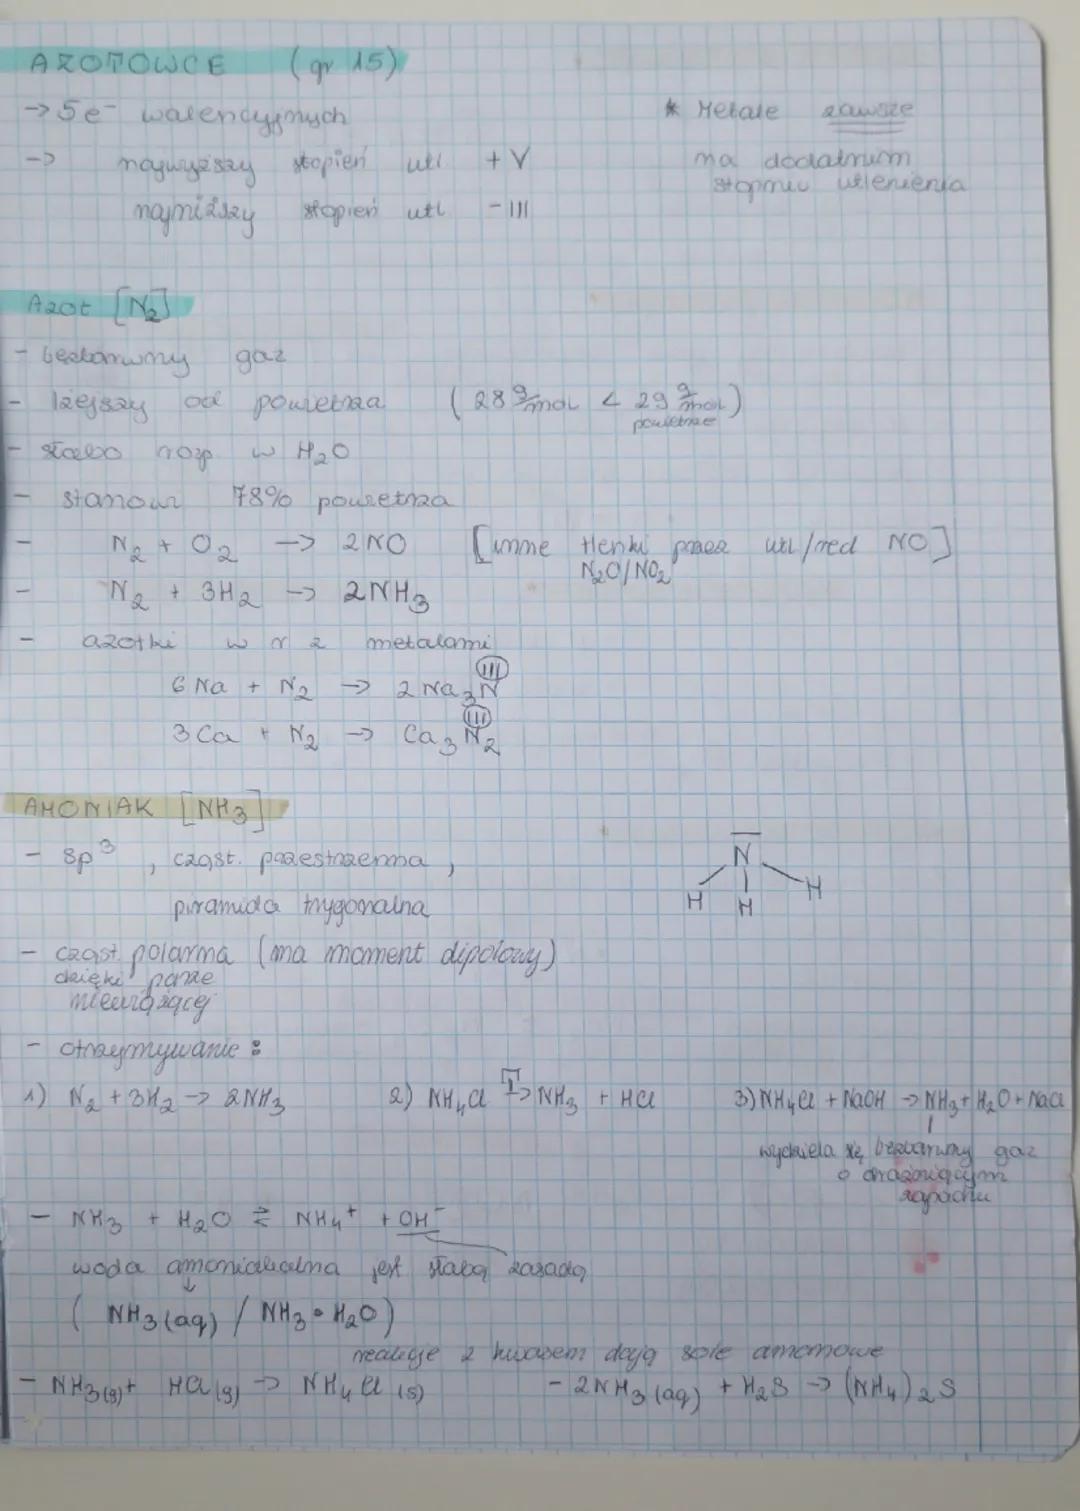 AZOTOWCE (gr 15)
→ 5e⁻ walencyjnych
* Metale zawsze
ma dodatnim
stopniu utlenienia
→ najwyższy stopień utl +V
najniższy stopień utl -III
Azot [N₂]
- bezbarwny gaz
- lżejszy od powietrza ( 28 g/mol < 29 g/mol )
powietrze
- słabo rozp. w H₂O
- stanowi 78% powietrza
- N₂ + O₂ → 2NO [inne tlenki przez utl/red NO]
N₂O/NO₂
- N₂ + 3H₂ → 2NH₃
- azotki w r z metalami
III
6 Na + N₂ → 2 Na₃N
III
3 Ca + N₂ → Ca₃N₂
AMONIAK [NH₃]
- sp³ , cząst. przestrzenna ,
piramida trygonalna
N
H H H
- cząst. polarna (ma moment dipolowy)
dzięki parze
niewiążącej
- otrzymywanie :
1) N₂ + 3H₂ → 2NH₃ 2) NH₄Cl T→ NH₃ + HCl 3) NH₄Cl + NaOH → NH₃ + H₂O + NaCl
wydziela się bezbarwny gaz
o drażniącym
zapachu
- NH₃ + H₂O ⇄ NH₄⁺ + OH⁻
woda amoniakalna jest słabą zasadą
( NH₃(aq) / NH₃ • H₂O )
reakcje z kwasem dają sole amonowe
- NH₃(g) + HCl(g) → NH₄Cl(s) - 2NH₃(aq) + H₂S → (NH₄)₂S